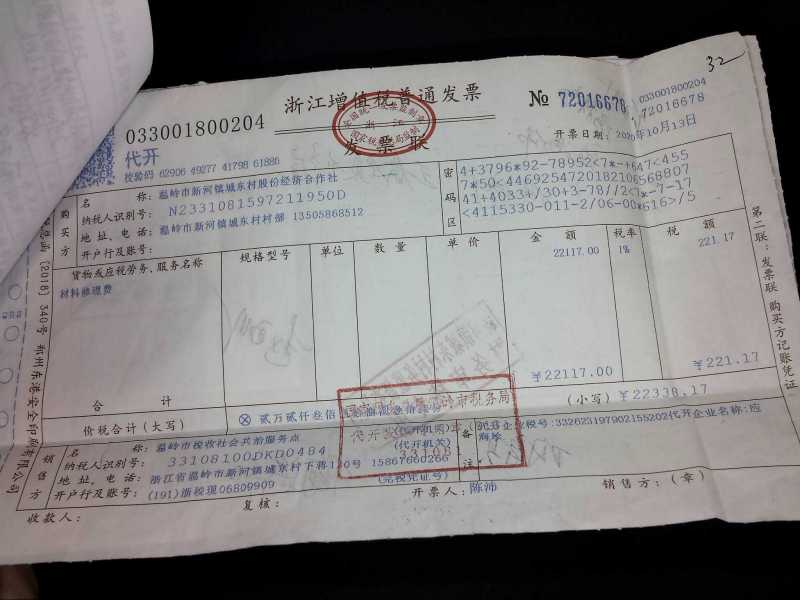 32
浙江增值税普通发票
№ 72016678
033001800204
72016678
033001800204
发票联
开票日期: 2020年10月13日
代开
校验码 62906 49277 41798 61886
购买方
名称: 温岭市新河镇城东村股份经济合作社
纳税人识别号: N2331081597211950D
地址、电话: 温岭市新河镇城东村村部 13505868512
开户行及账号:
密码区
4+3796*92-78952<7*-+647<455
7*50<4469254720182106568807
41+4033+/30+3-78//2<7*-7-17
<4115330-011-2/06-00*616>/5
货物或应税劳务、服务名称 规格型号 单位 数量 单价 金额 税率 税额
材料修理费 22117.00 1% 221.17
合计 ￥22117.00 ￥221.17
价税合计(大写) ⊗ 贰万贰仟叁佰 (小写) ￥22338.17
销售方
名称: 温岭市税收社会共治服务点
纳税人识别号: 33108100DKD0484
地址、电话: 浙江省温岭市新河镇城东村下蒋130号 15867660266
开户行及账号: (191)浙税现06809909 (完税凭证号)
(代开机关)
(代开机关)
备注
代开企业税号:332623197902155202代开企业名称:应
收款人:
复核:
开票人: 陈沛
销售方:(章)
第二联:发票联 购买方记账凭证